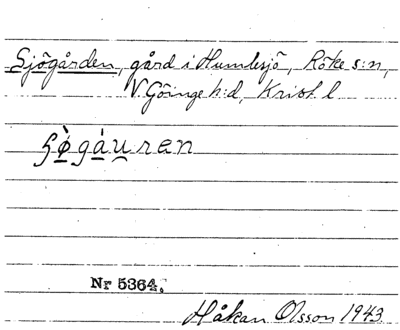 Sjögården, gård i Humlesjö, Röke s:n,
V. Göinge h:d, Krist. l
ʂø̀gáu̯ren
Nr 5364.
Håkan Olsson 1943